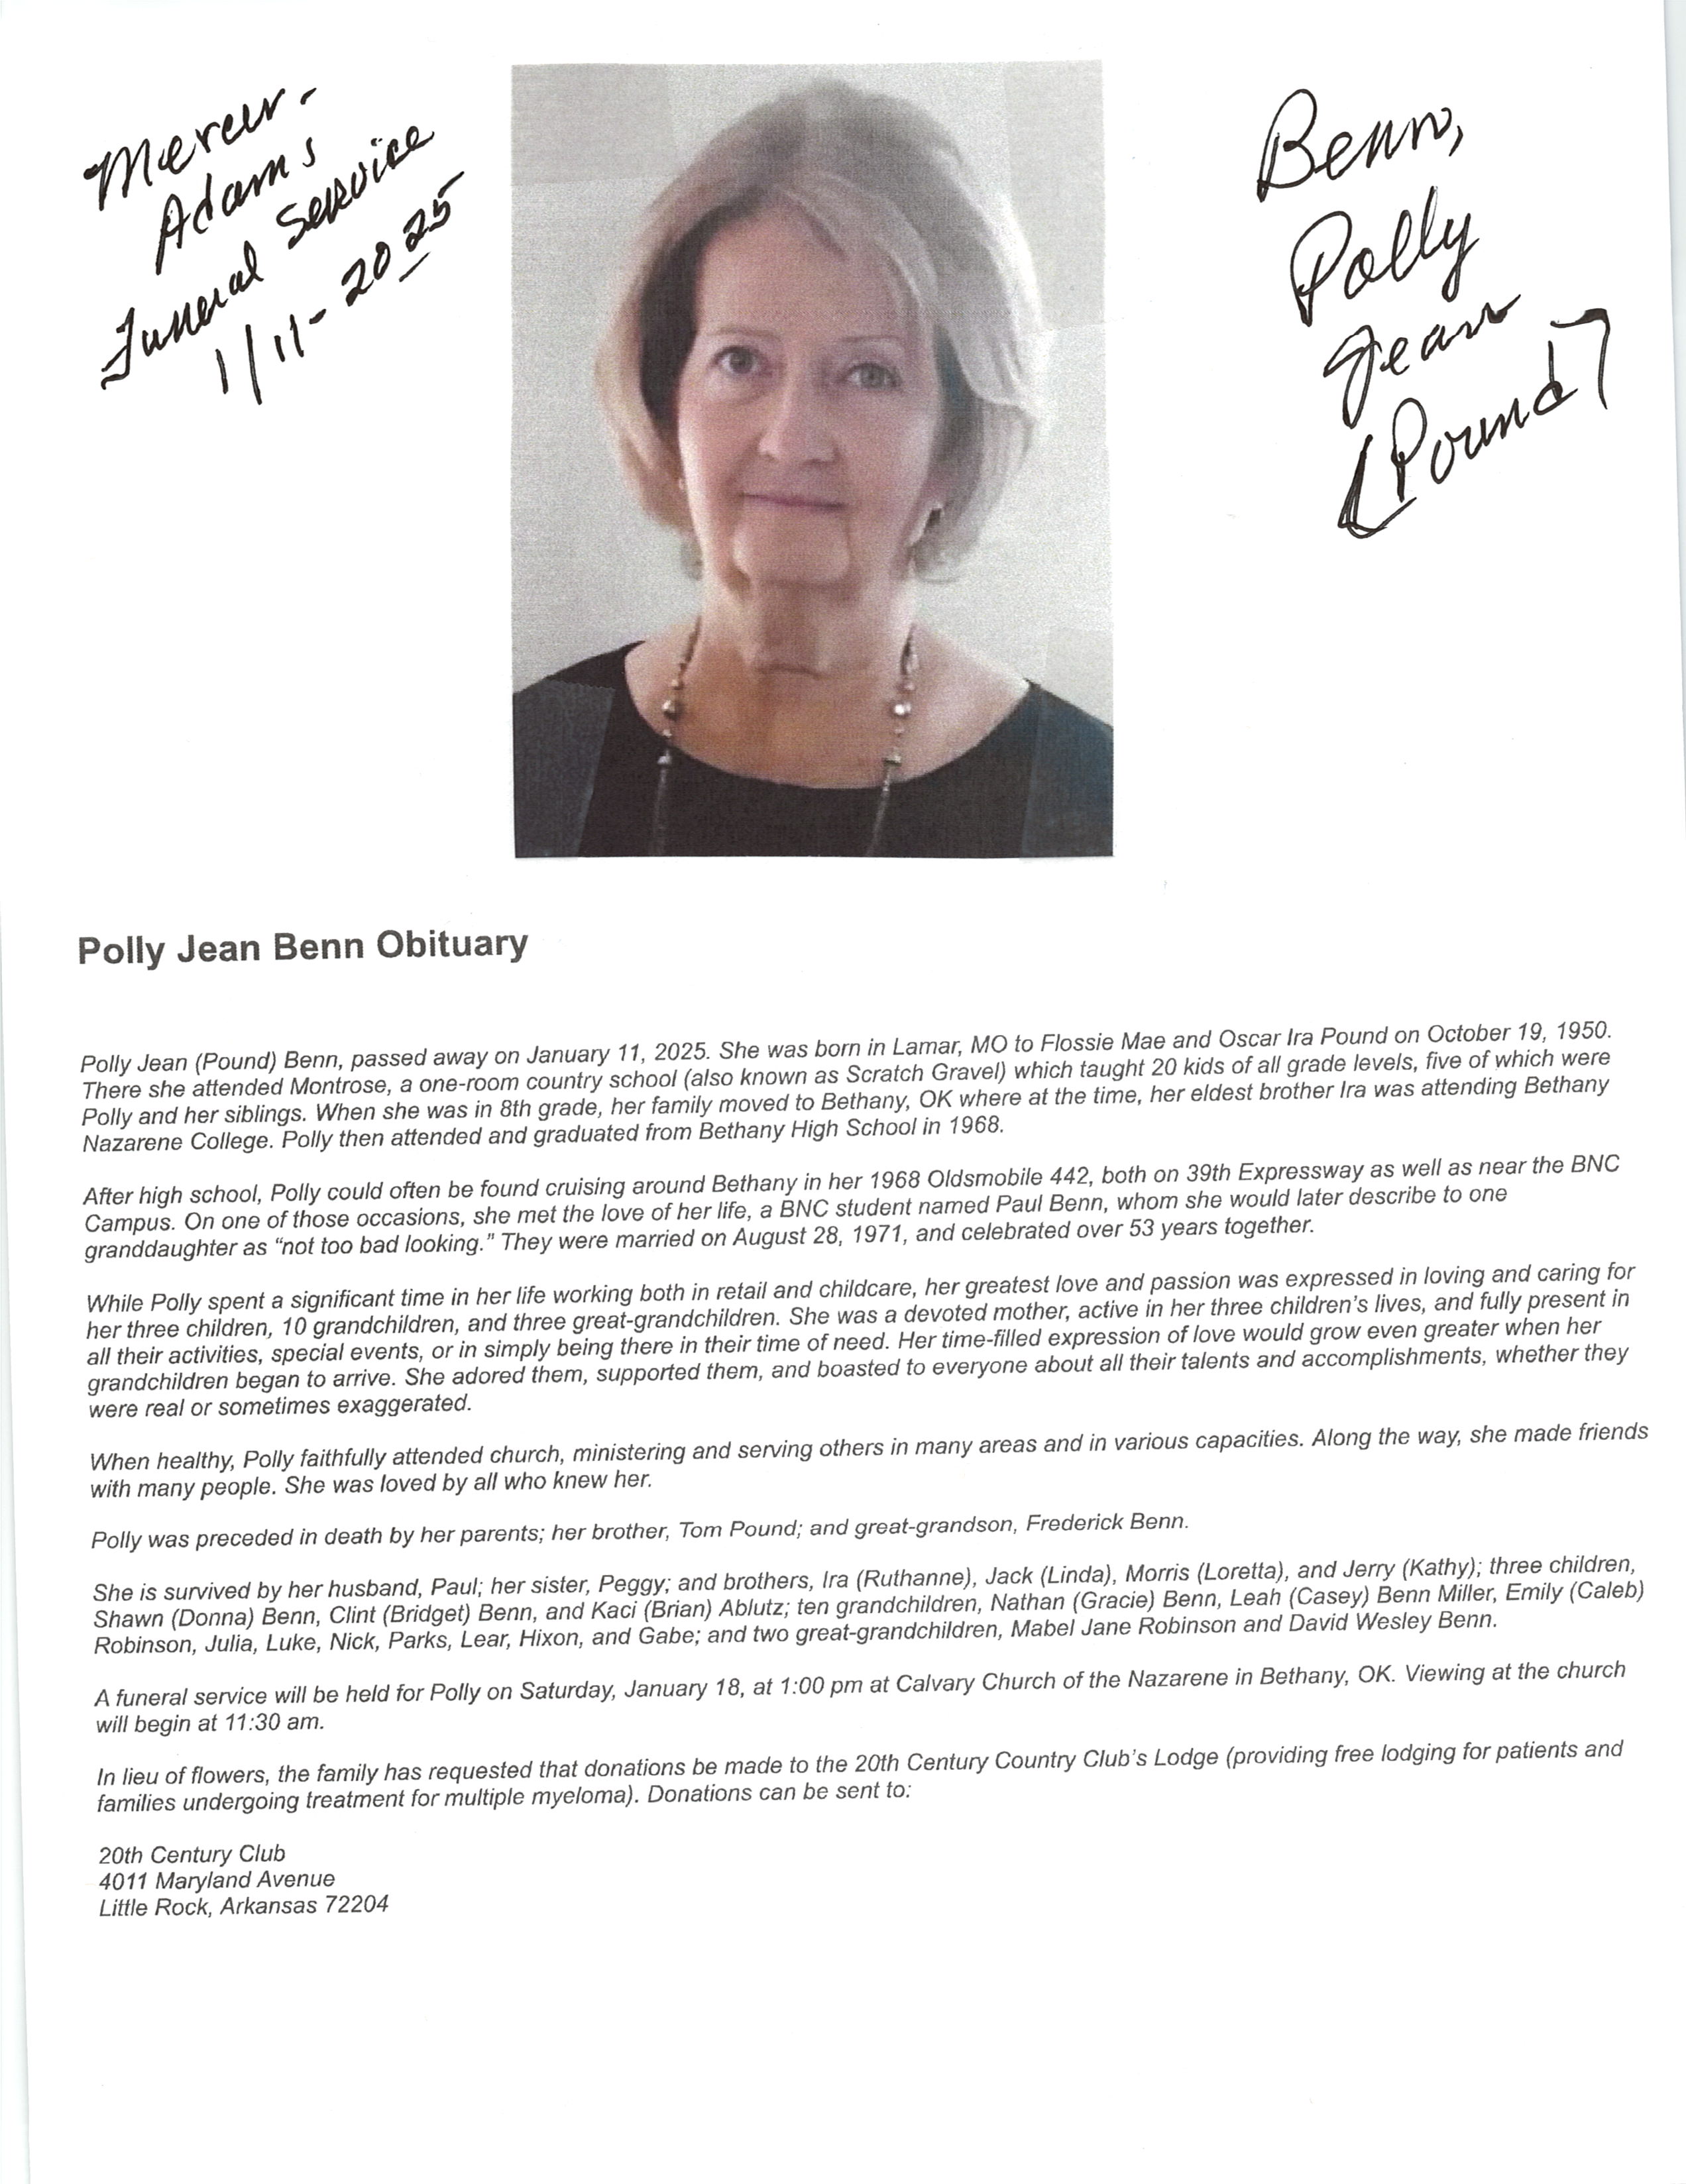 Mercer-
Adams
Funeral Service
1/11-2025
Benn,
Polly
Jean
(Pound)
Polly Jean Benn Obituary
Polly Jean (Pound) Benn, passed away on January 11, 2025. She was born in Lamar, MO to Flossie Mae and Oscar Ira Pound on October 19, 1950.
There she attended Montrose, a one-room country school (also known as Scratch Gravel) which taught 20 kids of all grade levels, five of which were
Polly and her siblings. When she was in 8th grade, her family moved to Bethany, OK where at the time, her eldest brother Ira was attending Bethany
Nazarene College. Polly then attended and graduated from Bethany High School in 1968.
After high school, Polly could often be found cruising around Bethany in her 1968 Oldsmobile 442, both on 39th Expressway as well as near the BNC
Campus. On one of those occasions, she met the love of her life, a BNC student named Paul Benn, whom she would later describe to one
granddaughter as “not too bad looking.” They were married on August 28, 1971, and celebrated over 53 years together.
While Polly spent a significant time in her life working both in retail and childcare, her greatest love and passion was expressed in loving and caring for
her three children, 10 grandchildren, and three great-grandchildren. She was a devoted mother, active in her three children’s lives, and fully present in
all their activities, special events, or in simply being there in their time of need. Her time-filled expression of love would grow even greater when her
grandchildren began to arrive. She adored them, supported them, and boasted to everyone about all their talents and accomplishments, whether they
were real or sometimes exaggerated.
When healthy, Polly faithfully attended church, ministering and serving others in many areas and in various capacities. Along the way, she made friends
with many people. She was loved by all who knew her.
Polly was preceded in death by her parents; her brother, Tom Pound; and great-grandson, Frederick Benn.
She is survived by her husband, Paul; her sister, Peggy; and brothers, Ira (Ruthanne), Jack (Linda), Morris (Loretta), and Jerry (Kathy); three children,
Shawn (Donna) Benn, Clint (Bridget) Benn, and Kaci (Brian) Ablutz; ten grandchildren, Nathan (Gracie) Benn, Leah (Casey) Benn Miller, Emily (Caleb)
Robinson, Julia, Luke, Nick, Parks, Lear, Hixon, and Gabe; and two great-grandchildren, Mabel Jane Robinson and David Wesley Benn.
A funeral service will be held for Polly on Saturday, January 18, at 1:00 pm at Calvary Church of the Nazarene in Bethany, OK. Viewing at the church
will begin at 11:30 am.
In lieu of flowers, the family has requested that donations be made to the 20th Century Country Club’s Lodge (providing free lodging for patients and
families undergoing treatment for multiple myeloma). Donations can be sent to:
20th Century Club
4011 Maryland Avenue
Little Rock, Arkansas 72204